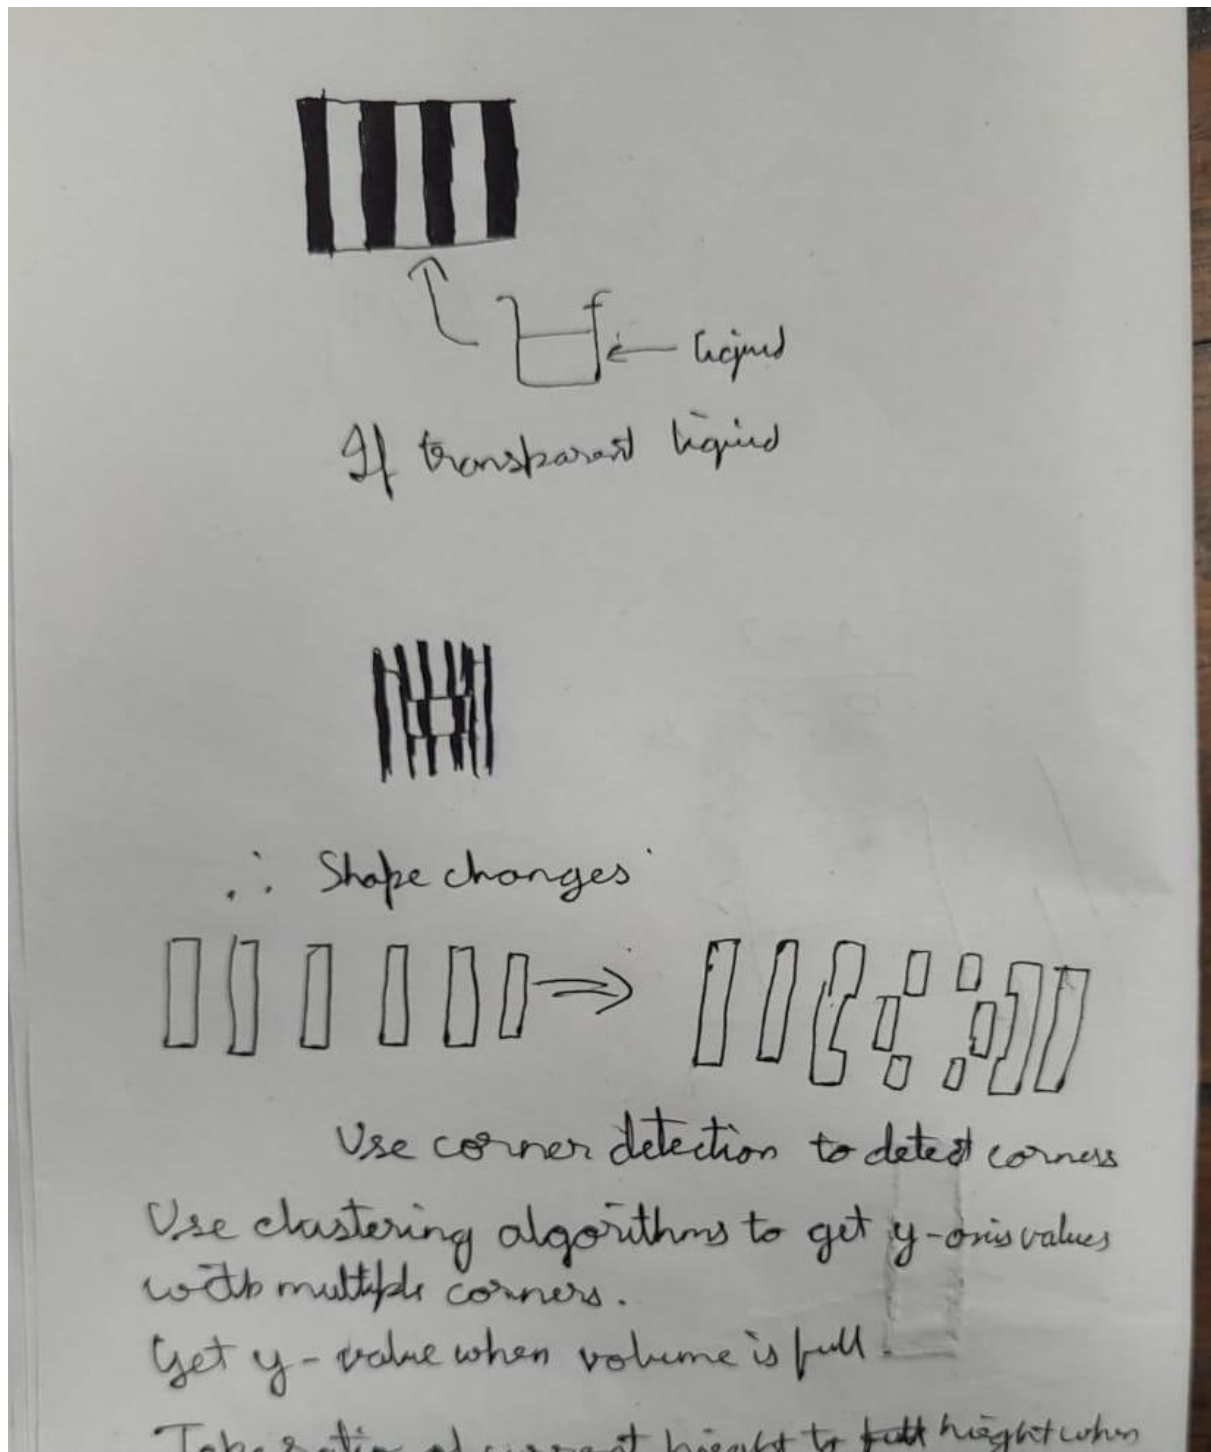 liquid
If transparent liquid
∴ Shape changes
Use corner detection to detect corners
Use clustering algorithms to get y-axis values
with multiple corners.
Get y-value when volume is full.
Take ratio of current height to full height when